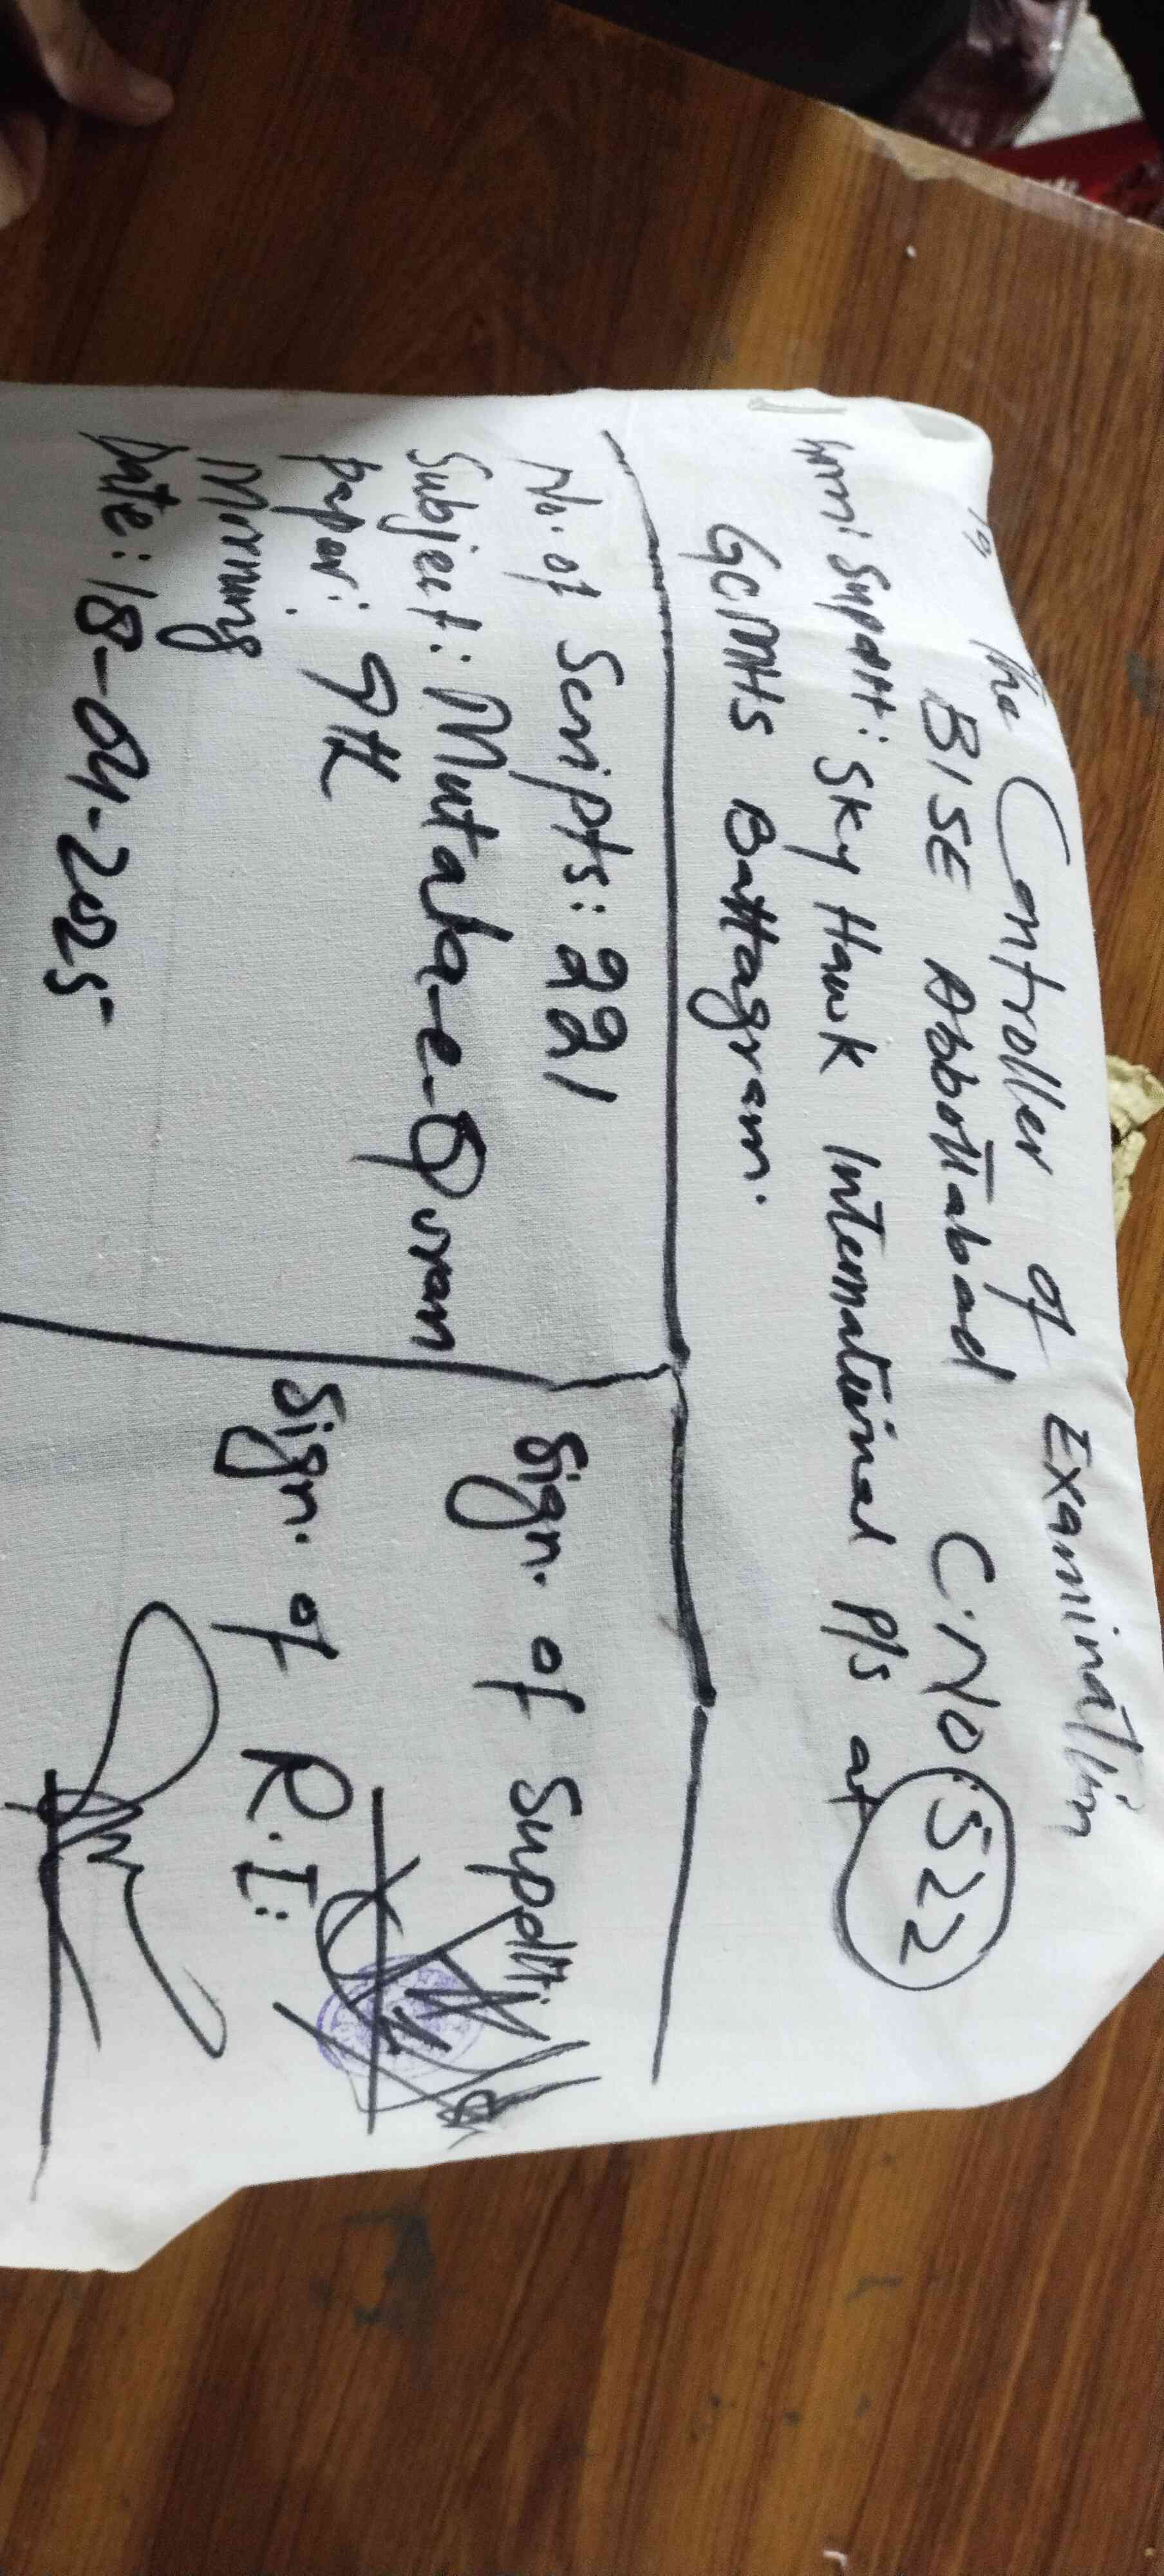 To The Controller of Examination
BISE Abbottabad C.No: 522
from: Supdtt: Sky Hawk International P/s at
GCMHS Battagram.
No. of Scripts: 221
Subject: Mutala-e-Quran
Paper: 9th
Morning
Date: 18-04-2025
Sign. of Supdtt.
Sign. of R.I: